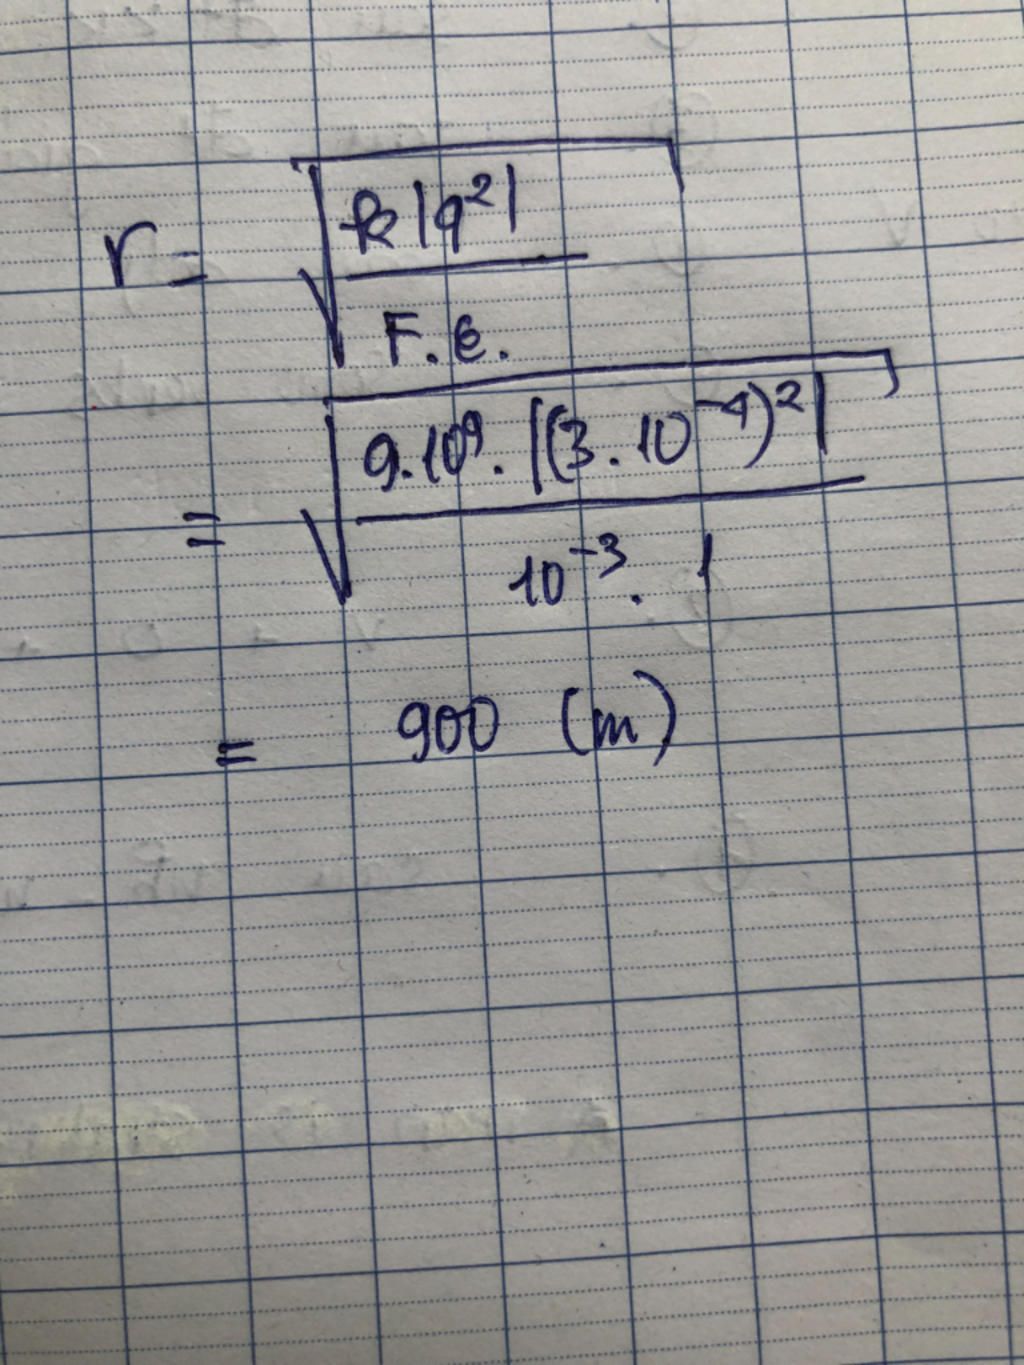 r = √(k|q²| / F.ε.)
= √(9.10⁹.|(3.10⁻⁴)²| / 10⁻³.1)
= 900 (m)